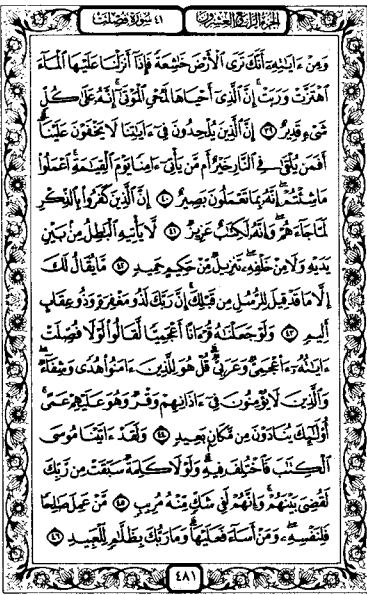 الجزء الرابع والعشرون
٤١ سورة فصلت
وَمِنْ ءَايَٰتِهِۦٓ أَنَّكَ تَرَى ٱلْأَرْضَ خَٰشِعَةً فَإِذَآ أَنزَلْنَا عَلَيْهَا ٱلْمَآءَ
ٱهْتَزَّتْ وَرَبَتْ ۚ إِنَّ ٱلَّذِىٓ أَحْيَاهَا لَمُحْىِ ٱلْمَوْتَىٰٓ ۚ إِنَّهُۥ عَلَىٰ كُلِّ
شَىْءٍ قَدِيرٌ ٣٩ إِنَّ ٱلَّذِينَ يُلْحِدُونَ فِىٓ ءَايَٰتِنَا لَا يَخْفَوْنَ عَلَيْنَآ ۗ
أَفَمَن يُلْقَىٰ فِى ٱلنَّارِ خَيْرٌ أَم مَّن يَأْتِىٓ ءَامِنًا يَوْمَ ٱلْقِيَٰمَةِ ۚ ٱعْمَلُوا۟
مَا شِئْتُمْ ۖ إِنَّهُۥ بِمَا تَعْمَلُونَ بَصِيرٌ ٤٠ إِنَّ ٱلَّذِينَ كَفَرُوا۟ بِٱلذِّكْرِ
لَمَّا جَآءَهُمْ ۖ وَإِنَّهُۥ لَكِتَٰبٌ عَزِيزٌ ٤١ لَّا يَأْتِيهِ ٱلْبَٰطِلُ مِنۢ بَيْنِ
يَدَيْهِ وَلَا مِنْ خَلْفِهِۦ ۖ تَنزِيلٌ مِّنْ حَكِيمٍ حَمِيدٍ ٤٢ مَّا يُقَالُ لَكَ
إِلَّا مَا قَدْ قِيلَ لِلرُّسُلِ مِن قَبْلِكَ ۚ إِنَّ رَبَّكَ لَذُو مَغْفِرَةٍ وَذُو عِقَابٍ
أَلِيمٍ ٤٣ وَلَوْ جَعَلْنَٰهُ قُرْءَانًا أَعْجَمِيًّا لَّقَالُوا۟ لَوْلَا فُصِّلَتْ
ءَايَٰتُهُۥٓ ۖ ءَا۬عْجَمِىٌّ وَعَرَبِىٌّ ۗ قُلْ هُوَ لِلَّذِينَ ءَامَنُوا۟ هُدًى وَشِفَآءٌ ۖ
وَٱلَّذِينَ لَا يُؤْمِنُونَ فِىٓ ءَاذَانِهِمْ وَقْرٌ وَهُوَ عَلَيْهِمْ عَمًى ۚ
أُو۟لَٰٓئِكَ يُنَادَوْنَ مِن مَّكَانٍۭ بَعِيدٍ ٤٤ وَلَقَدْ ءَاتَيْنَا مُوسَى
ٱلْكِتَٰبَ فَٱخْتُلِفَ فِيهِ ۗ وَلَوْلَا كَلِمَةٌ سَبَقَتْ مِن رَّبِّكَ
لَقُضِىَ بَيْنَهُمْ ۚ وَإِنَّهُمْ لَفِى شَكٍّ مِّنْهُ مُرِيبٍ ٤٥ مَّنْ عَمِلَ صَٰلِحًا
فَلِنَفْسِهِۦ ۖ وَمَنْ أَسَآءَ فَعَلَيْهَا ۗ وَمَا رَبُّكَ بِظَلَّٰمٍ لِّلْعَبِيدِ ٤٦
٤٨١